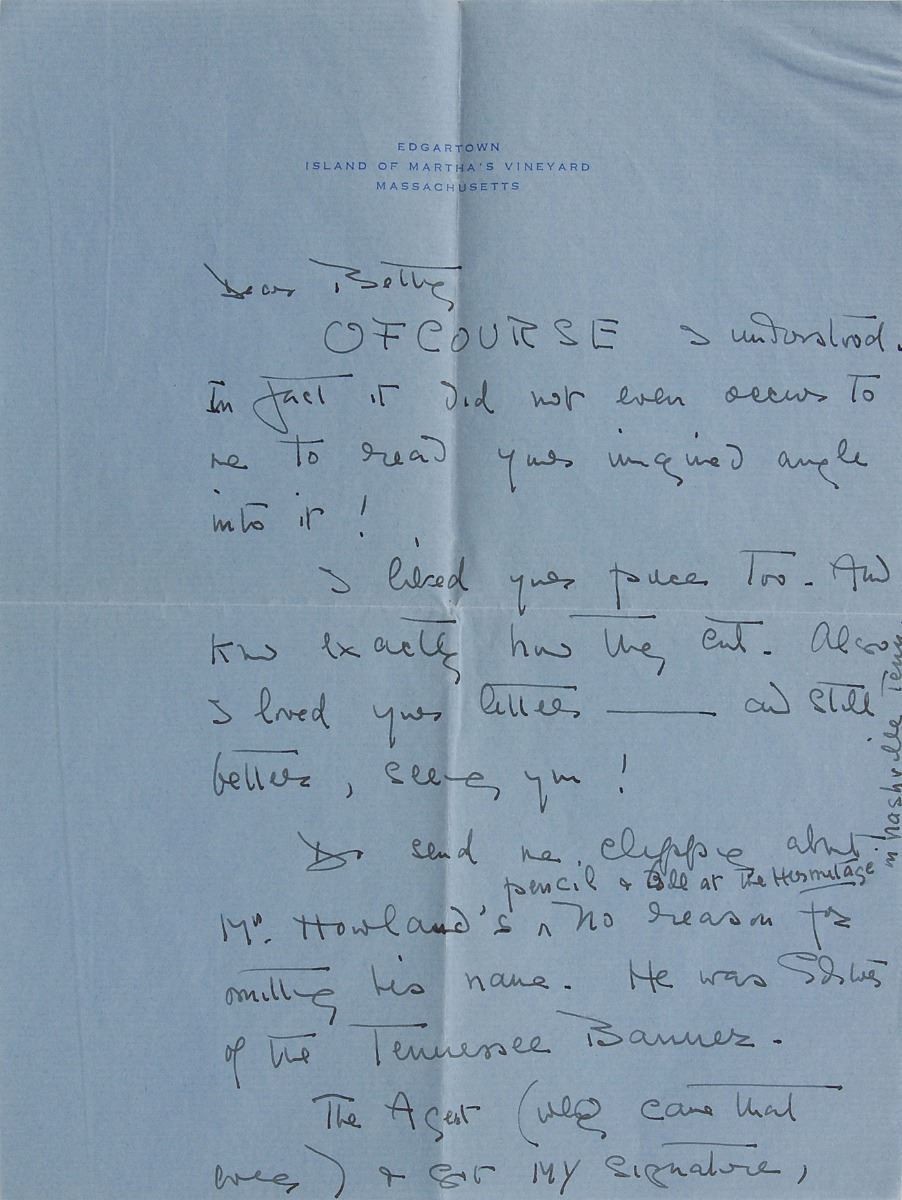 EDGARTOWN
ISLAND OF MARTHA'S VINEYARD
MASSACHUSETTS
Dear Betty
OF COURSE I understood.
In fact it did not even occur to
me to read your angle
into it!
I liked your piece too. And
know exactly how they cut. Also
I loved your letters — and still
better, seeing you!
Do send me clipping about
pencil & at the Hermitage
in Nashville Tenn.
Mr. Howland's no reason for
omitting his name. He was Editor
of the Tennessee Banner.
The Agent ( came that
) & got MY signature,